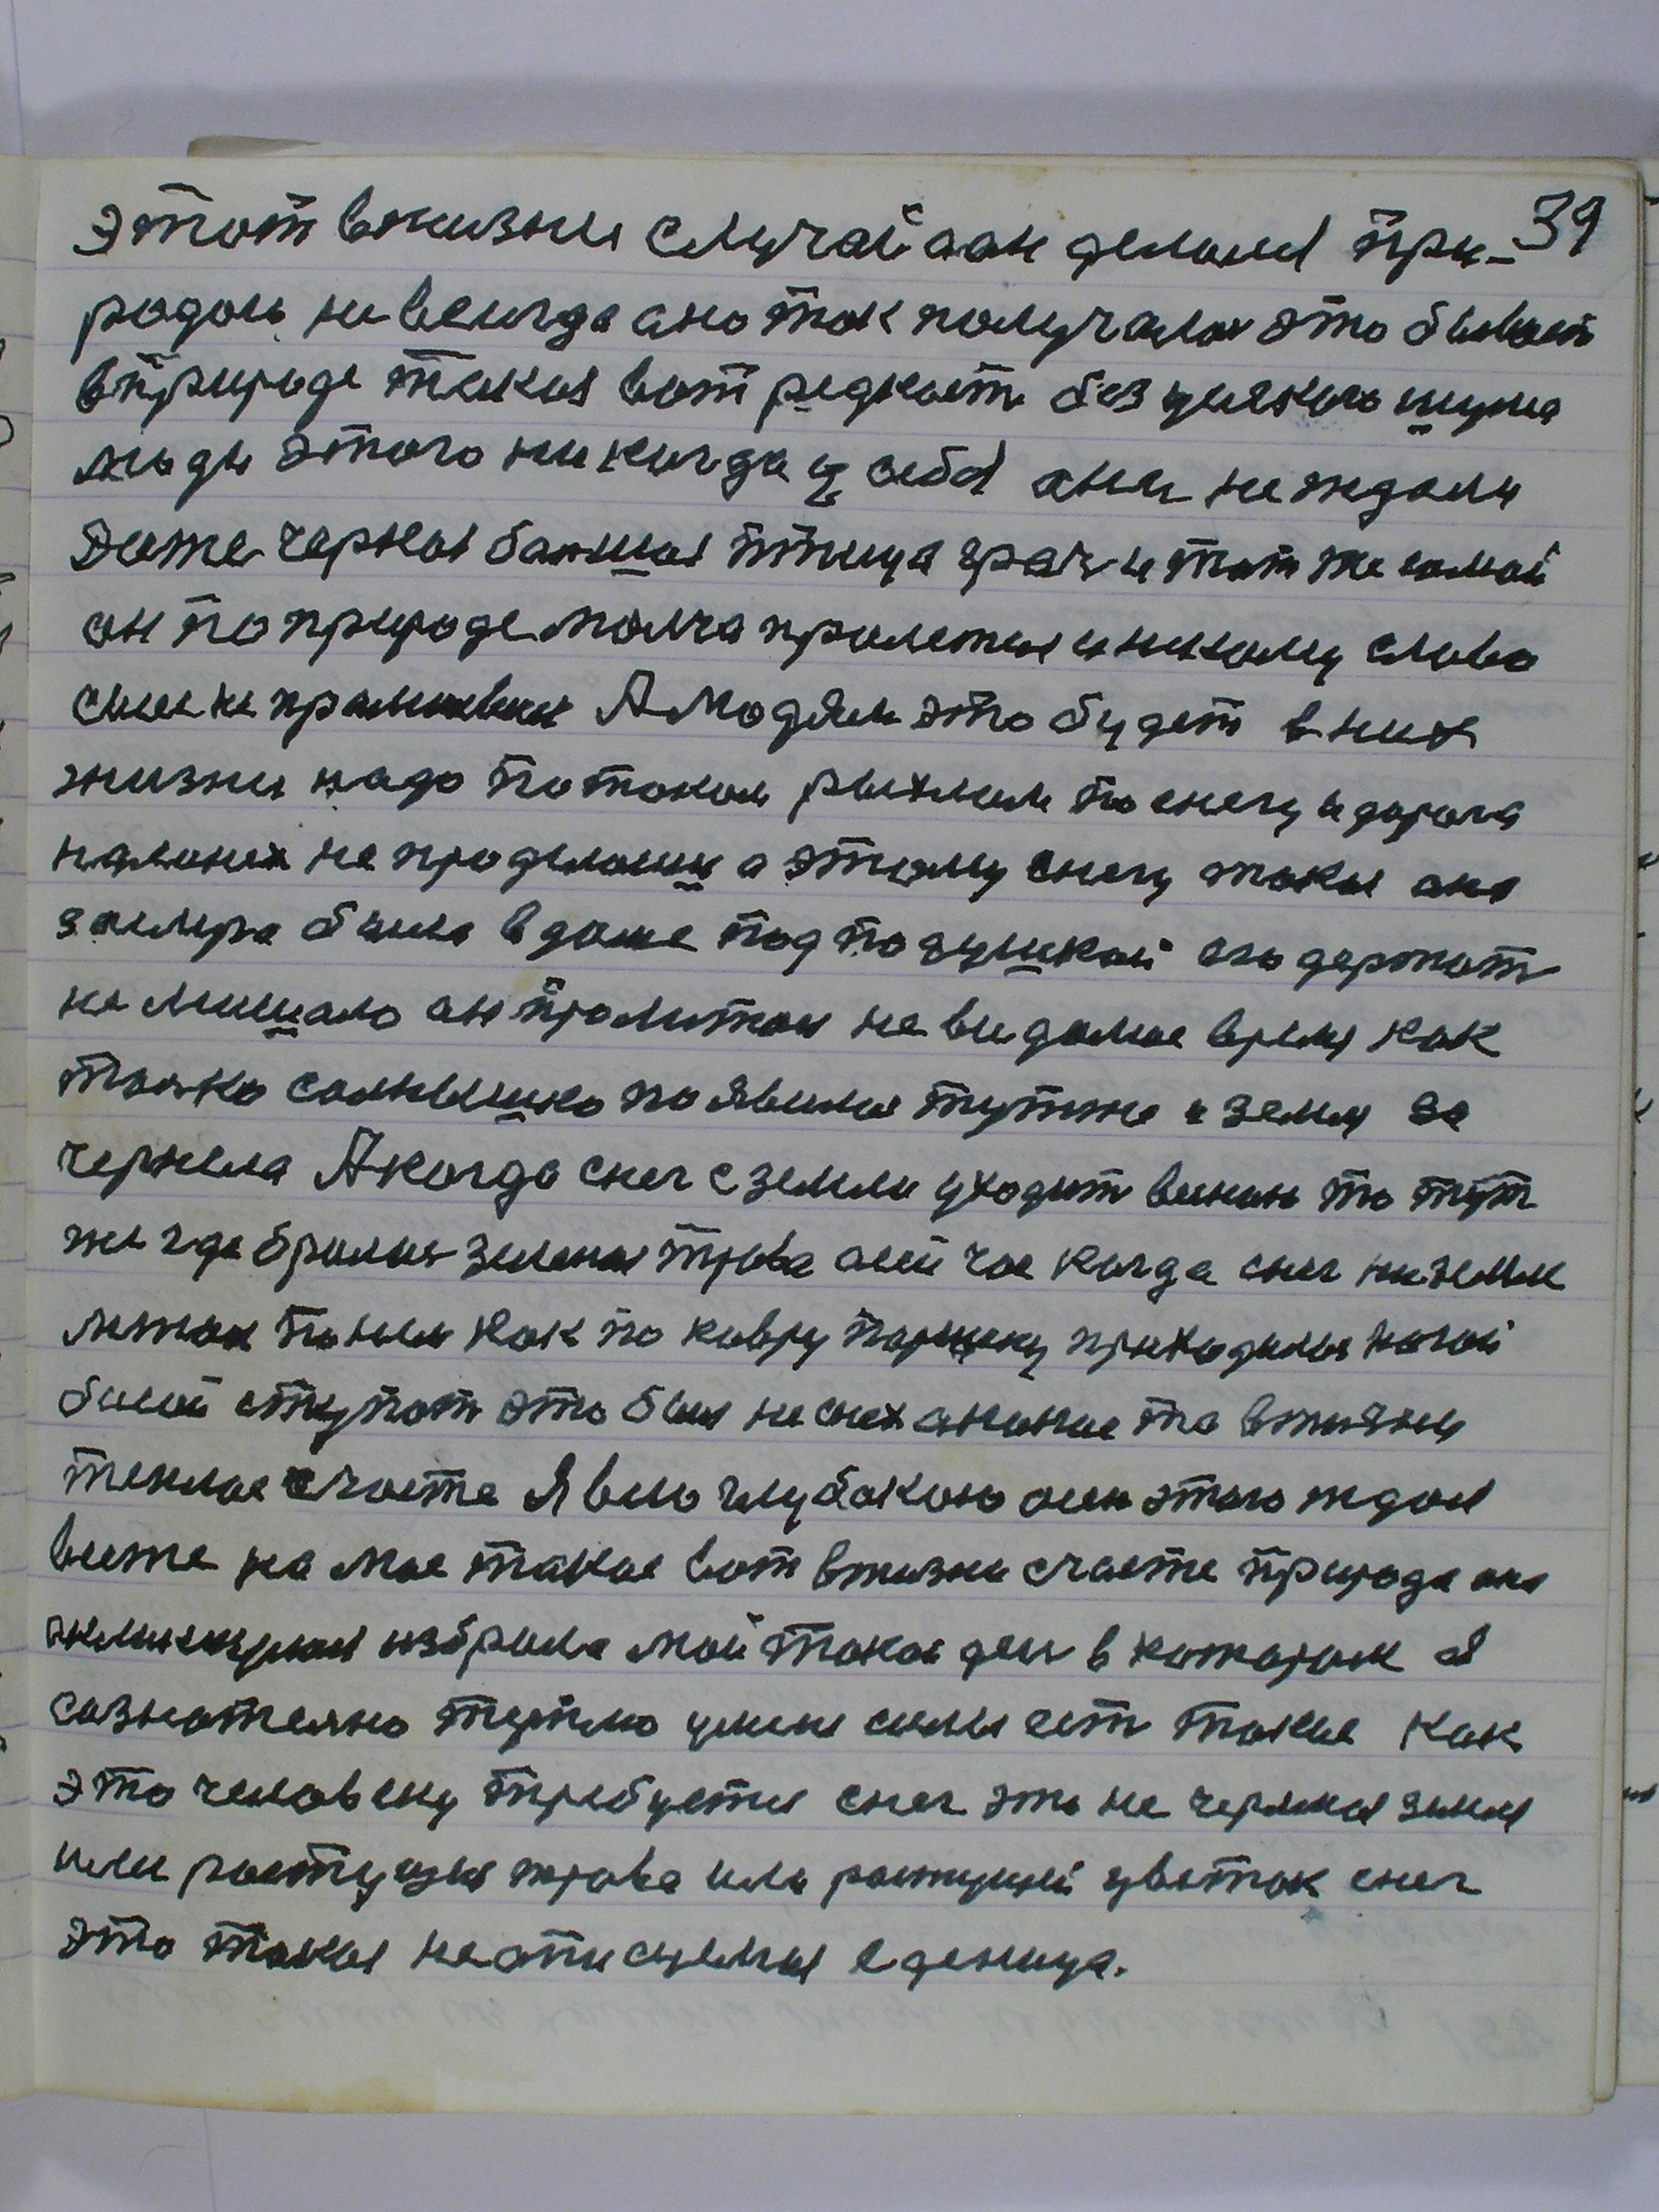 39
этот вжизни случай аон делался при-
родой не всигда ано так получалася это бывает
вприроде такия вот редкасть без усякого шума
люды этого никагда у себя ани не ждали
Даже черная балшая птица грач и тот же самой
он по природе молча пролетел и никому слово
свое не Я людям это будет в них
жизни надо по таком рыхлым по снегу и дорога
не проделаны а этому снегу такая ана
замера была в доме под подушкой его держат
не мишало он не видамое время как
толко солнышко появился тутже и земля за
чернела А когда снег с земли уходит висною то тут
же где бралас зеленая трава сей час когда снег на земле
лежал по ним как по ковру приходился ногой
босой ступат это был не снех а то вжизни
теплае счастя Я всю глубокою осен этого ждал
на мое такое вот вжизни счастя природа она
избрала мой такой ден в котором я
сознателно терплю умене силы ест такие как
это человеку требуется снег это не черная земля
или растущая трава или ростущий цветок снег
это такая неописуемая еденица.